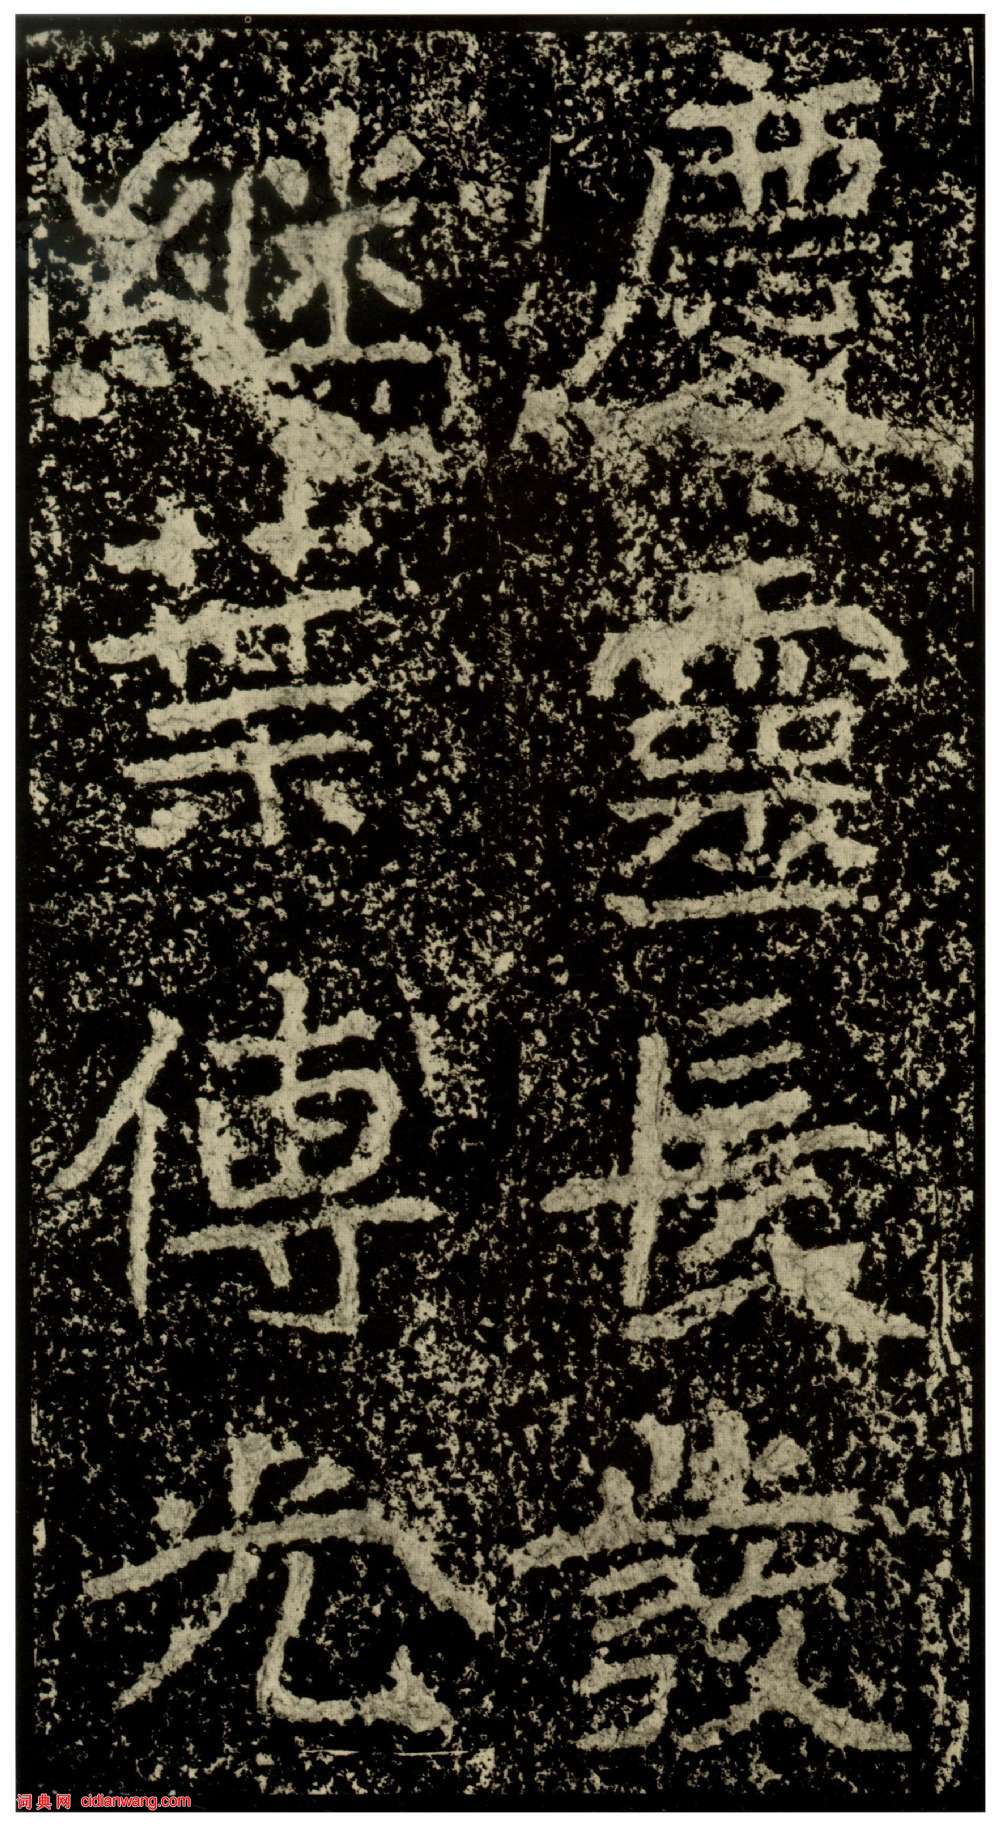 慶靈長發
繼葉傳光
词典网 cidianwang.com